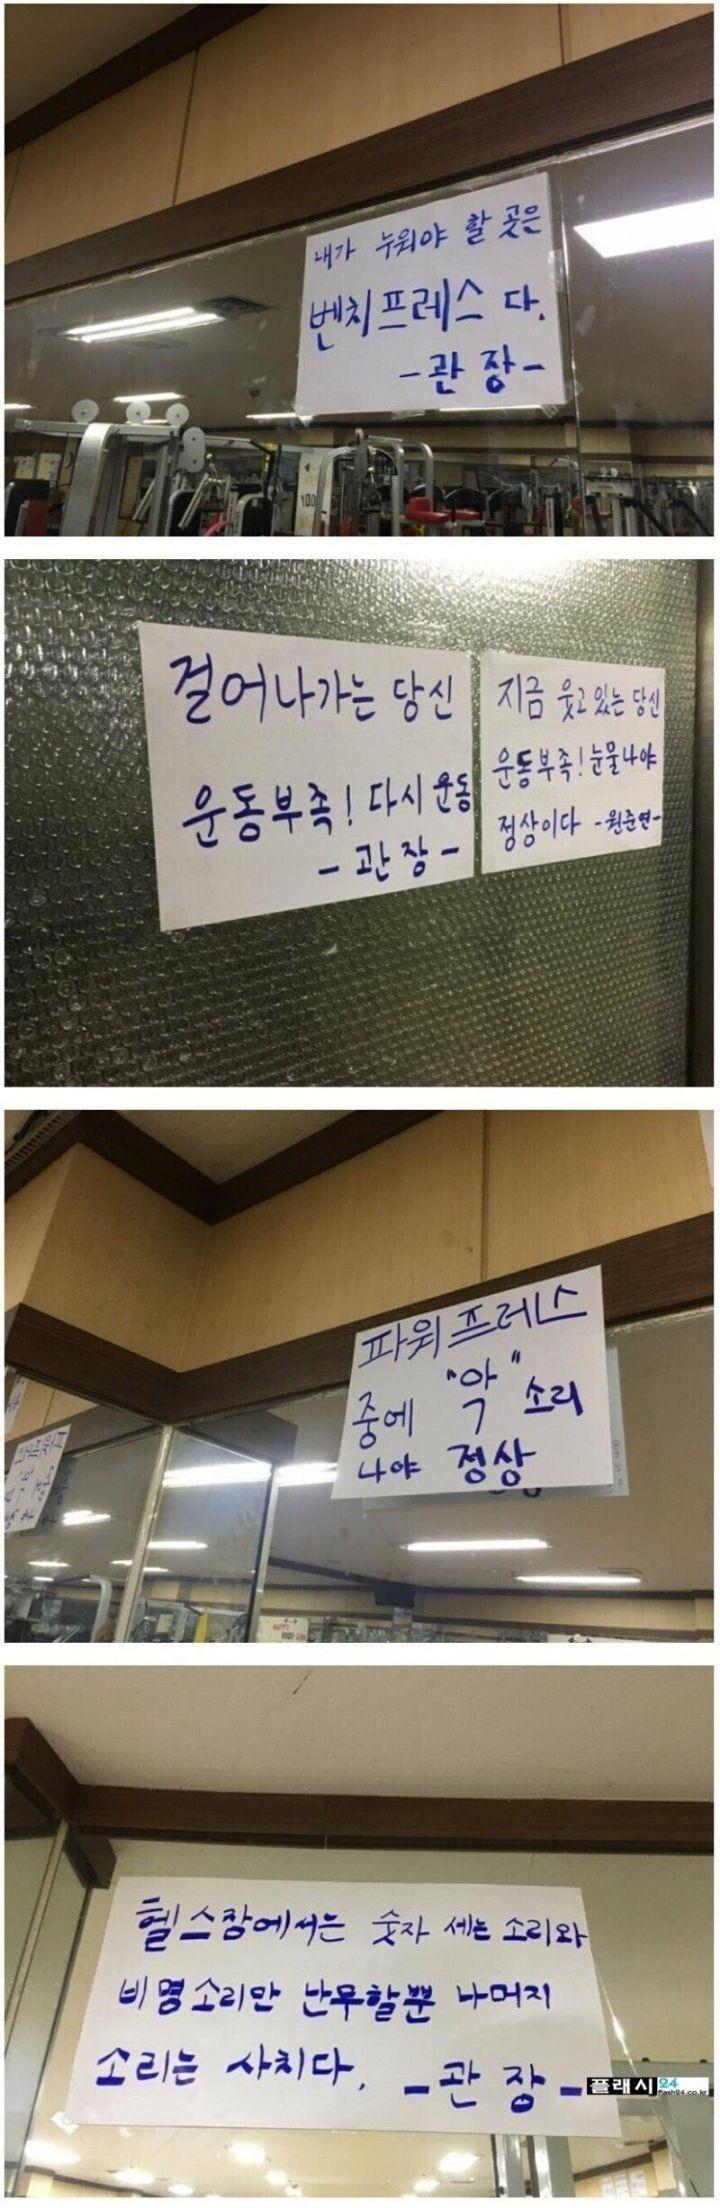 내가 누워야 할 곳은
벤치프레스 다.
-관 장-
YOO
걸어나가는 당신
운동부족! 다시 운동
- 관 장 -
지금 웃고 있는 당신
운동부족! 눈물나야
정상이다 -원준연-
파워프레스
중에 "악" 소리
나야 정상
HAPPY
헬스장에서는 숫자 세는 소리와
비명소리만 난무할뿐 나머지
소리는 사치다.
- 관 장 -
플래시24
flash24.co.kr